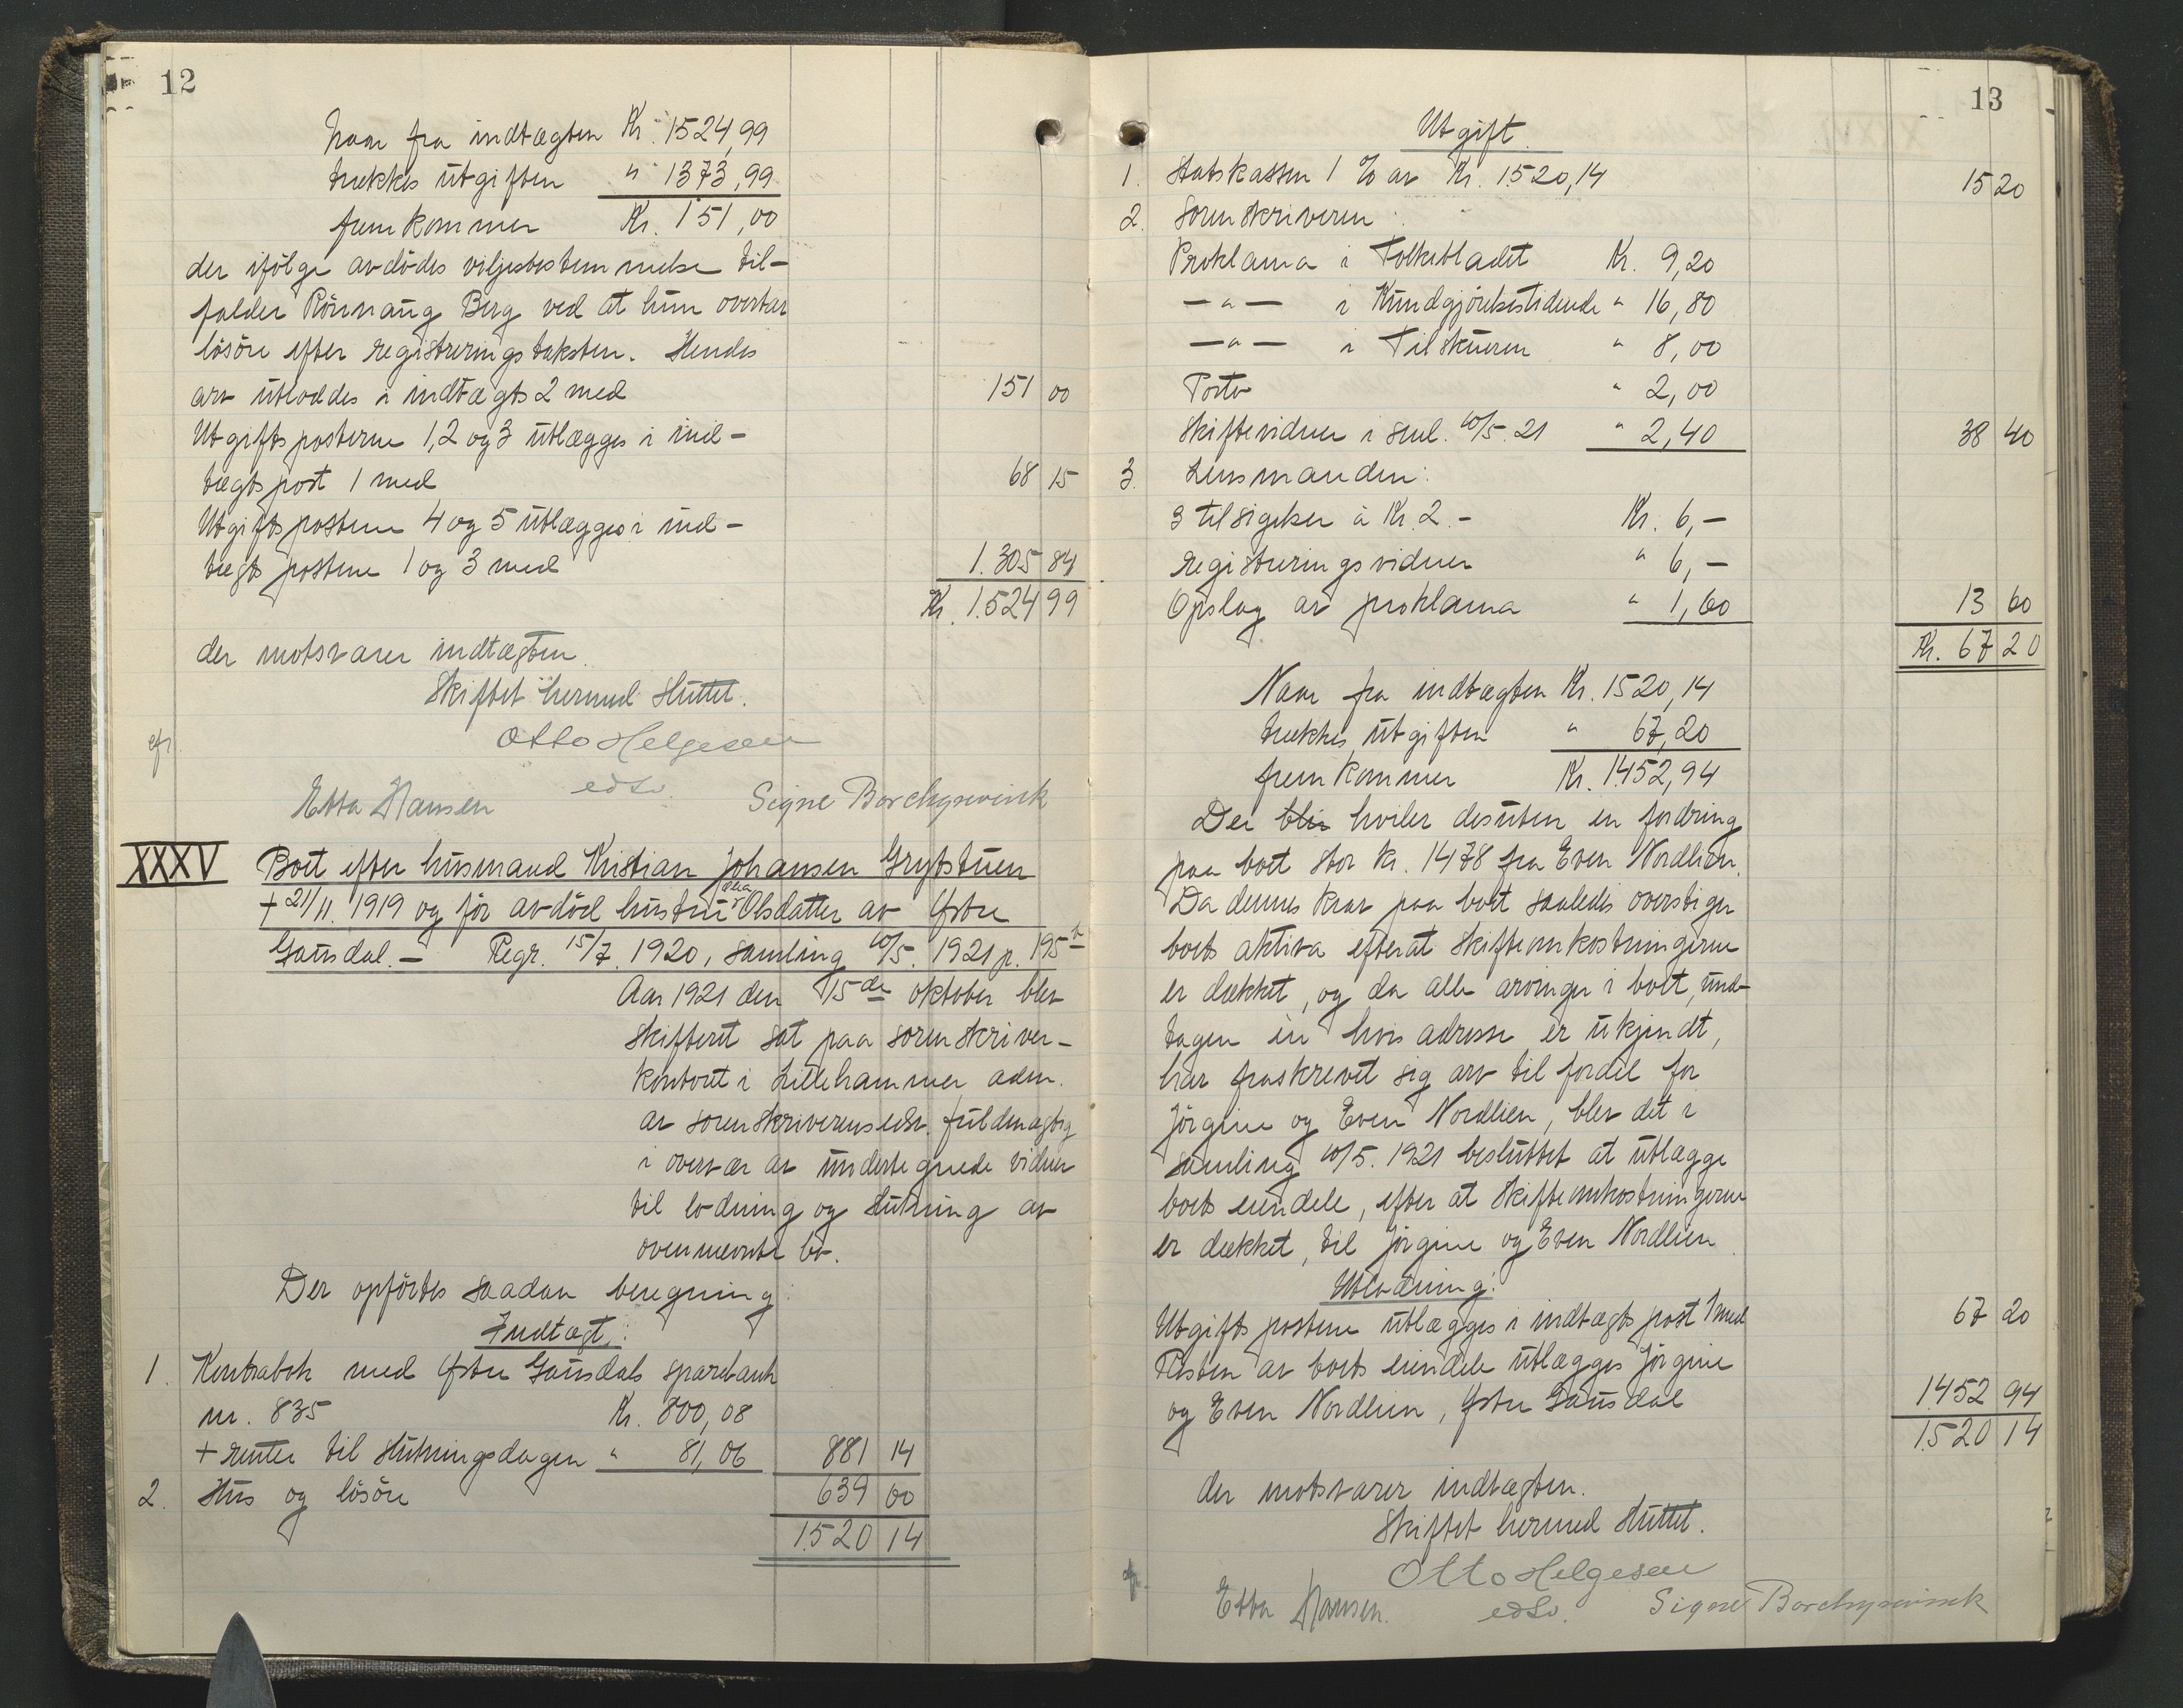 12
Naar fra indtægten Kr. 1524,99
trækkes utgiften " 1373,99
fremkommer Kr. 151,00
der ifölge avdödes viljesbestemmelse til-
falder Rönnaug Berg ved at hun overtar
lösöre efter registreringstaksten. Hendes
arv utloddes i indtægts 2 med 151 00
Utgiftsposterne 1, 2 og 3 utlægges i ind-
tægtspost 1 med 68 15
Utgiftspostene 4 og 5 utlægges i ind-
tægts postene 1 og 3 med 1.305 84
Kr. 1.524 99
der motsvarer indtægten.
Skiftet hermed sluttet.
Otto Helgesen
edsv.
Ebba Hansen Signe Borchgrevink
XXXV Boet efter husmand Kristian Johansen Grytstuen
+ 21/11. 1919 og för avdöd hustru Olsdatter av Östre
Gausdal. - Regr. 15/7. 1920, samling 10/5. 1921 p. 195 b
Aar 1921 den 15de oktober blev
skifteret sat paa sorenskriver-
kontoret i Lillehammer adm.
av sorenskriverens edsv. fuldmægtig
i overvær av undertegnede vidner
til lodning og slutning av
ovennævnte bo.
Der opförtes saadan beregning:
Indtægt:
1. Kontrabok med Östre Gausdals sparebank
nr. 835 Kr. 800,08
+ renter til slutningsdagen " 81,06 881 14
2. Hus og lösöre 639 00
1.520 14
13
Utgift.
1. Statskassen 1 % av Kr. 1.520,14 15 20
2. Sorenskriveren:
Proklama i Folkebladet Kr. 9,20
-"- i Kundgjörelsestidende " 16,80
-"- i Tilskueren " 8,00
Porto " 2,00
Skiftevidner i saml. 10/5. 21 " 2,40 38 40
3. Lensmanden:
3 tilsigelser à Kr. 2.- Kr. 6,-
registreringsvidner " 6,-
Opslag av proklama " 1,60 13 60
Kr. 67 20
Naar fra indtægten Kr. 1520,14
trækkes utgiften " 67,20
fremkommer Kr. 1.452,94
Der blir hviler desuten en fordring
paa boet stor kr. 1478 fra Even Nordlien.
Da dennes krav paa boet saaledes overstiger
boets aktiva efterat skifteomkostningerne
er dækket, og da alle arvinger i boet, und-
tagen én hvis adresse er ukjendt,
har fraskrevet sig arv til fordel for
Jörgine og Even Nordlien, blev det i
samling 10/5. 1921 besluttet at utlægge
boets eiendele, efter at skifteomkostningerne
er dækket, til Jörgine og Even Nordlien.
Utlodning:
Utgifts postene utlægges i indtægts post 1 med 67 20
Resten av boets eiendele utlægges Jörgine
og Even Nordlien, Östre Gausdal 1.452 94
1.520 14
der motsvarer indtægten.
Skiftet hermed sluttet.
Otto Helgesen
Ebba Hansen. edsv. Signe Borchgrevink